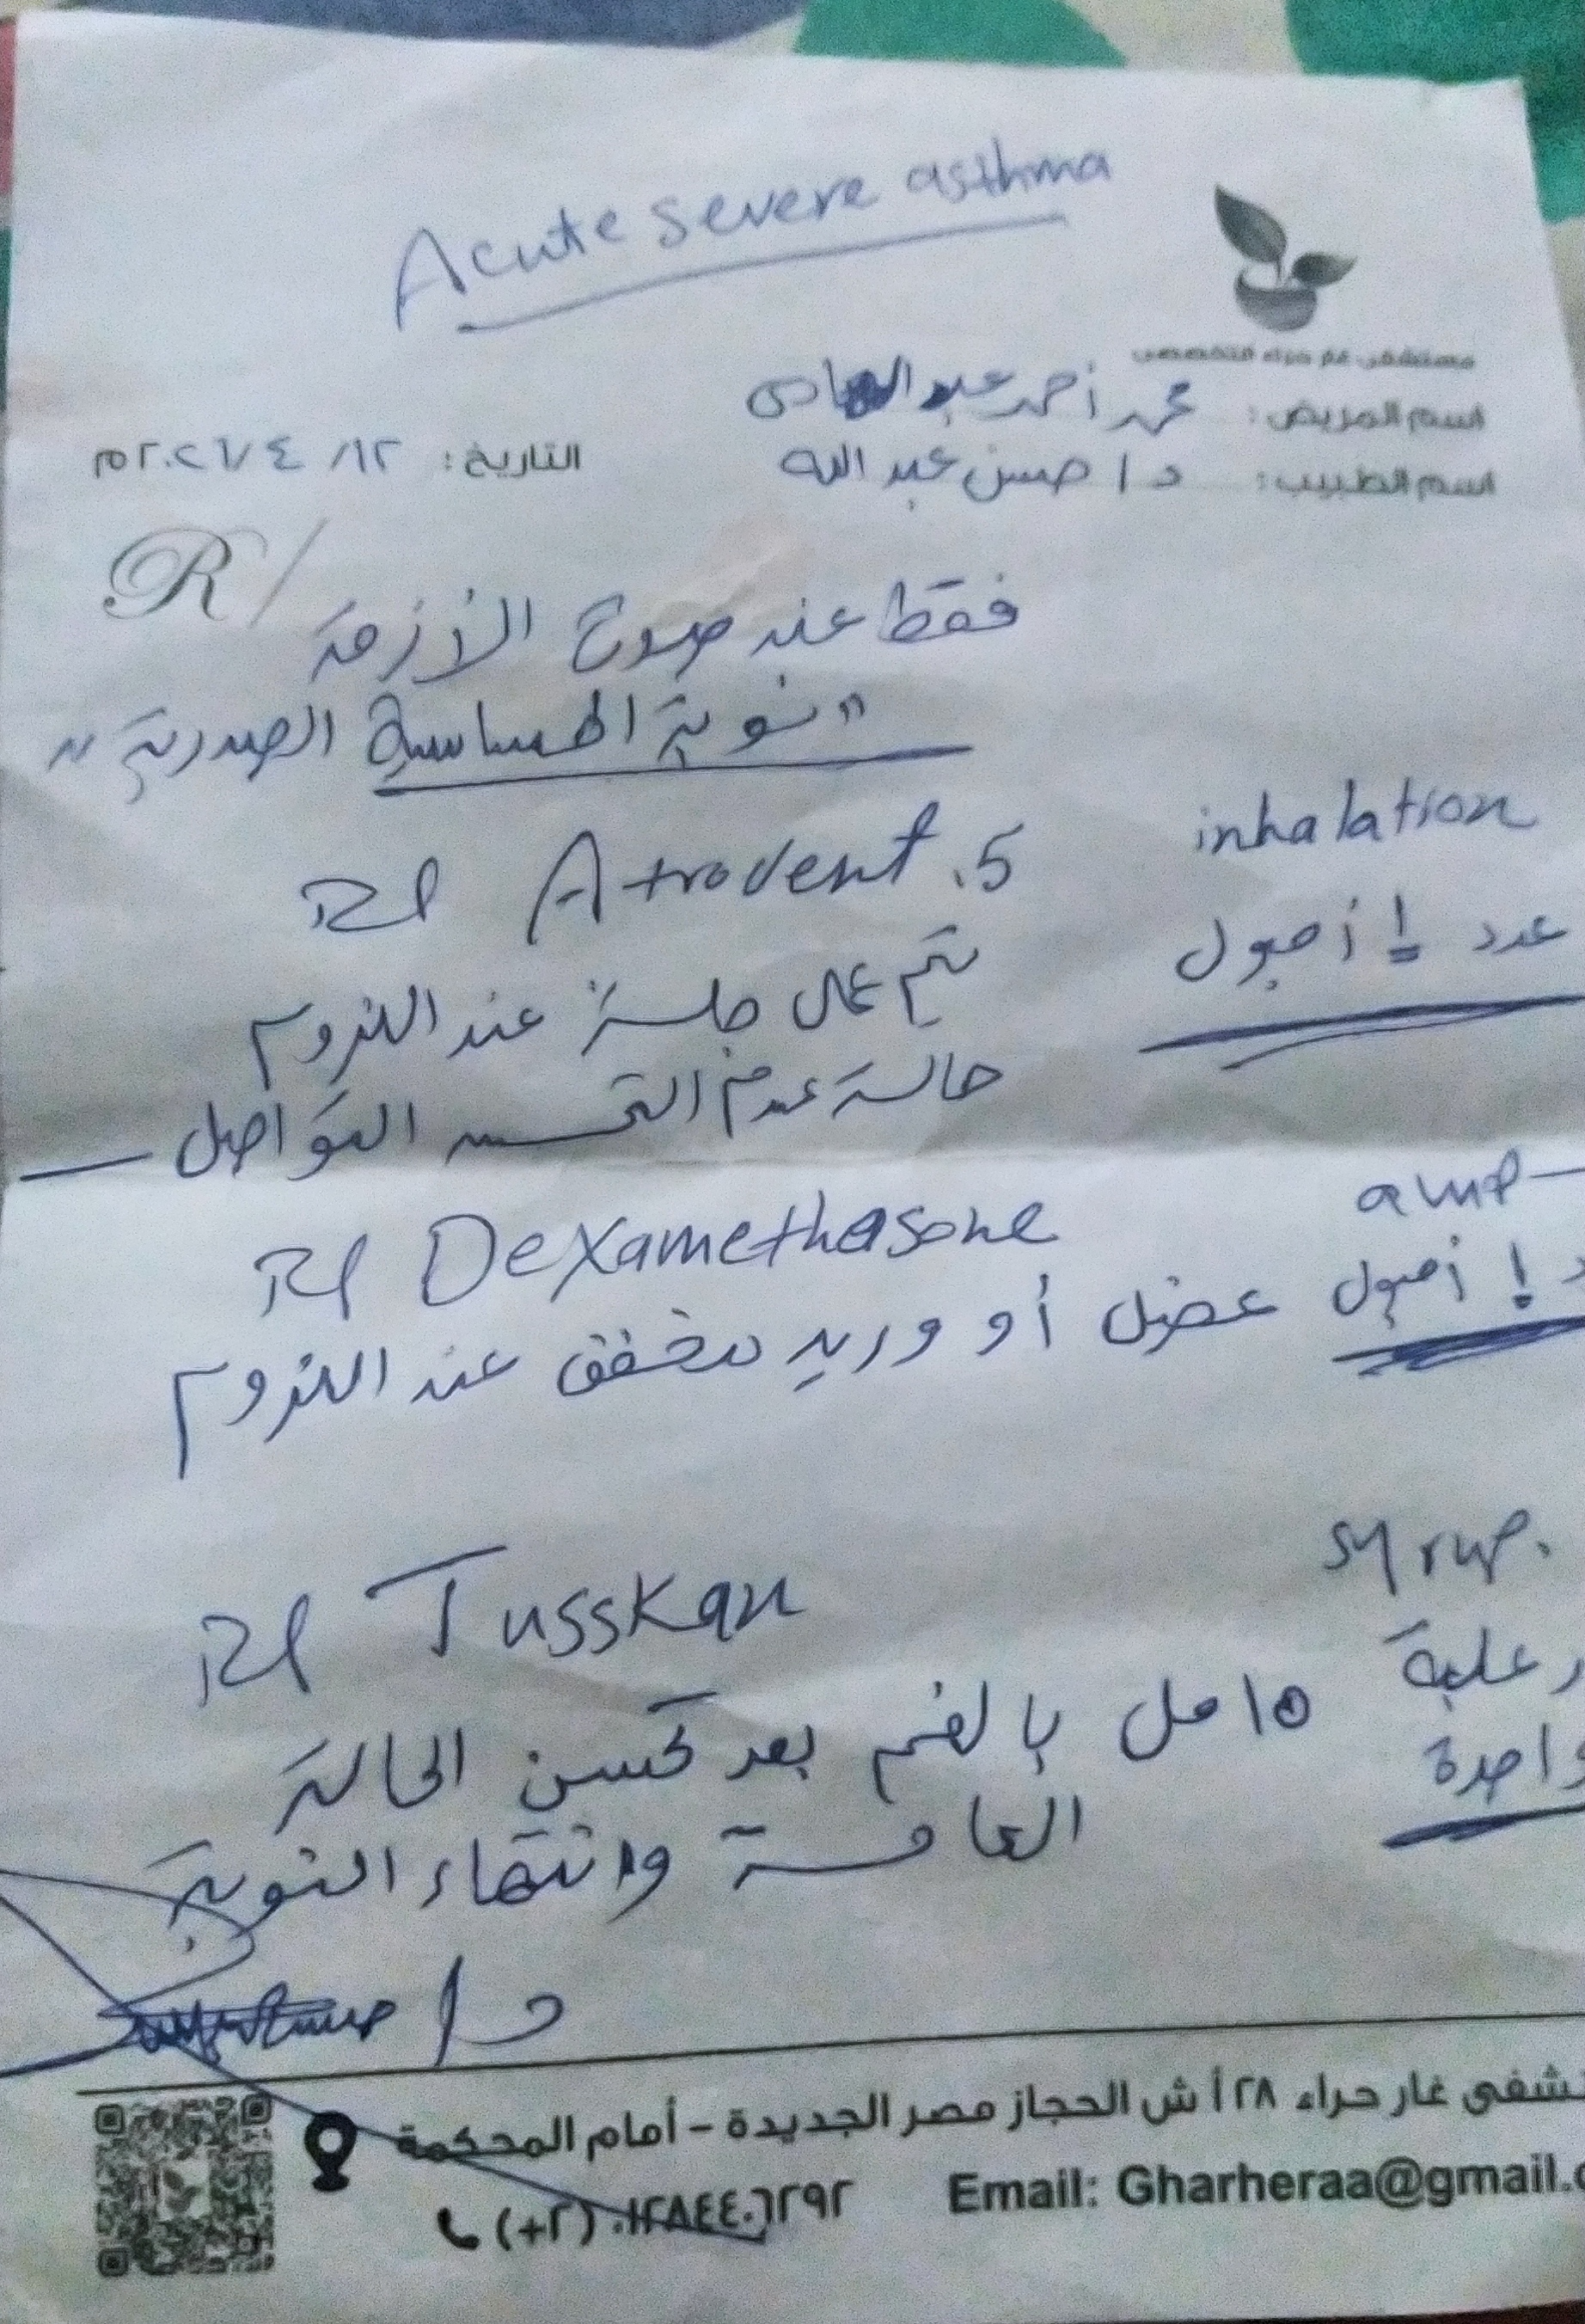 Acute severe asthma
مستشفى غار حراء التخصصي
اسم المريض: محمد أحمد عبد الهادى
اسم الطبيب: د/ حسن عبد الله
التاريخ: ١٢/ ٤ /٢٠٢٦م
R/
فقط عند حدوث الأزمة
"نوبة الحساسية الصدرية"
R/ Atrovent .5 inhalation
عدد ١ أمبول
يتم عمل جلسة عند اللزوم
حالة عدم التحسن المتواصل
R/ Dexamethasone amp
١ أمبول عضل أو وريد مخفف عند اللزوم
R/ Tusskan syrup.
علبة
واحدة
٥ مل بالفم بعد تحسن الحالة
العامة وانتهاء النوبة
د/ حسن
مستشفى غار حراء ٢٨ أ ش الحجاز مصر الجديدة - أمام المحكمة
(+٢) ٠١٢٨٤٤٠٦٢٩٢ Email: Gharheraa@gmail.c